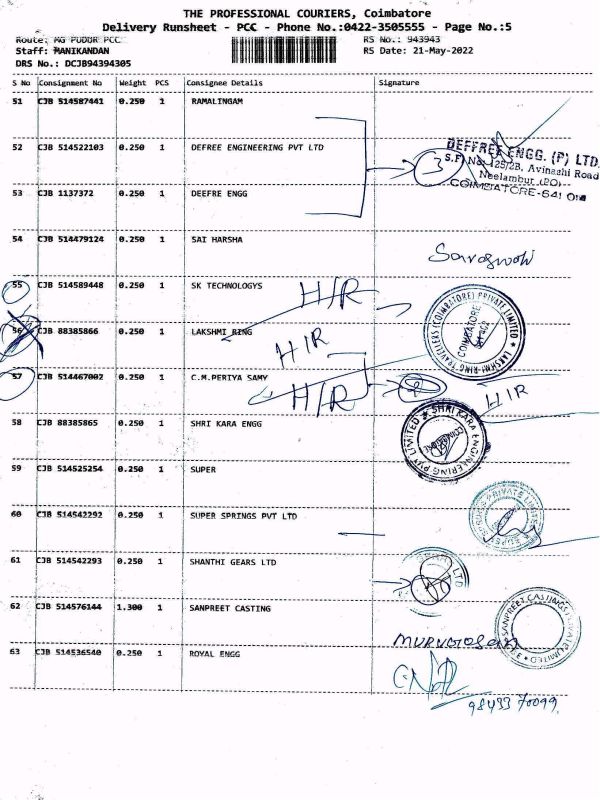 THE PROFESSIONAL COURIERS, Coimbatore
Delivery Runsheet - PCC - Phone No.:0422-3505555 - Page No.:5
Route: MG PUDUR PCC
RS No.: 943943
Staff: MANIKANDAN
RS Date: 21-May-2022
DRS No.: DCJB94394305
S No Consignment No Weight PCS Consignee Details Signature
51 CJB 514587441 0.250 1 RAMALINGAM
52 CJB 514522103 0.250 1 DEFREE ENGINEERING PVT LTD
3
DEFFREE ENGG. (P) LTD.
S.F. No. 125/2B, Avinashi Road
Neelambur (PO)
COIMBATORE-641 014
53 CJB 1137372 0.250 1 DEEFRE ENGG
54 CJB 514479124 0.250 1 SAI HARSHA
55 CJB 514589448 0.250 1 SK TECHNOLOGYS
H/R
56 CJB 88385866 0.250 1 LAKSHMI RING
H/R
LAKSHMI-RING TRAVELLERS (COIMBATORE) PRIVATE LIMITED
COIMBATORE
57 CJB 514467002 0.250 1 C.M.PERIYA SAMY
H/R
H/R
58 CJB 88385865 0.250 1 SHRI KARA ENGG
SHRI KARA ENGINEERING PVT LIMITED
59 CJB 514525254 0.250 1 SUPER
60 CJB 514542292 0.250 1 SUPER SPRINGS PVT LTD
61 CJB 514542293 0.250 1 SHANTHI GEARS LTD
62 CJB 514576144 1.300 1 SANPREET CASTING
SANPREET CASTINGS PRIVATE LIMITED
63 CJB 514536540 0.250 1 ROYAL ENGG
98433 70099